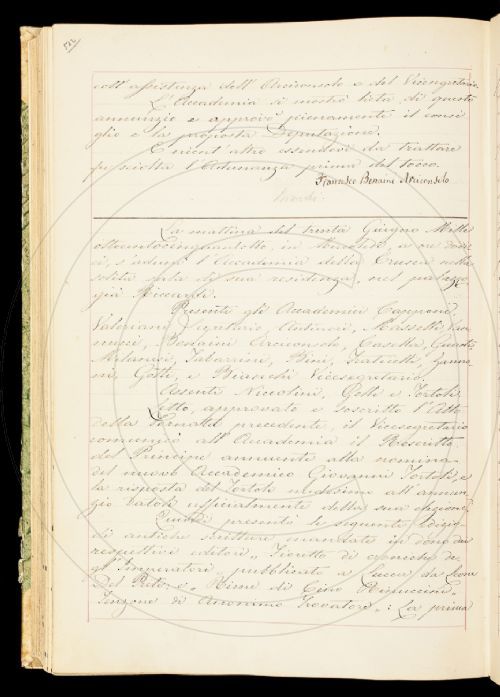 522
coll'assistenza dell'Arciconsolo e del Vicesegretario.
L'Accademia si mostrò lieta di questo
annunzio e approvò pienamente il consi
glio e la proposta Deputazione.
E nient'altro essendovi da trattare
fu sciolta l'Adunanza prima del tocco.
Francesco Bonaini Arciconsolo
La mattina del trenta Giugno Mille
ottocentocinquantotto, in Mercoledì, a ore dodi
ci, s'adunò l'Accademia della Crusca nella
solita sala di sua residenza, nel palazzo
già Riccardi.
Presenti gli Accademici Capponi,
Valeriani, Arcangeli, Antinori, Masselli, Van
nucci, Bonaini Arciconsolo, Casella, Quarto
Milanesi, Tabarrini, Bini, Fraticelli, Zanno
ni, Gotti e Bianchi Vicesegretario.
Assenti Niccolini, Gelli e Tortoli.
Letto, approvato e soscritto l'Atto
della tornata precedente, il Vicesegretario
comunicò all'Accademia il Rescritto
del Principe annuente alla nomina
del nuovo Accademico Giovanni Tortoli, e
la risposta del Tortoli medesimo all'annun
zio datoli ufficialmente della sua elezione.
Quindi presentò le seguenti Edizio
ni di antiche scritture mandate in dono dai
respettivi editori „ Fioretti di croniche de
gl'Imperatori, pubblicati a Lucca da Leone
Del Prete, e „ Rime di Cino Rinuccini „
Tenzone di Anonimo Trovatore „: La prima